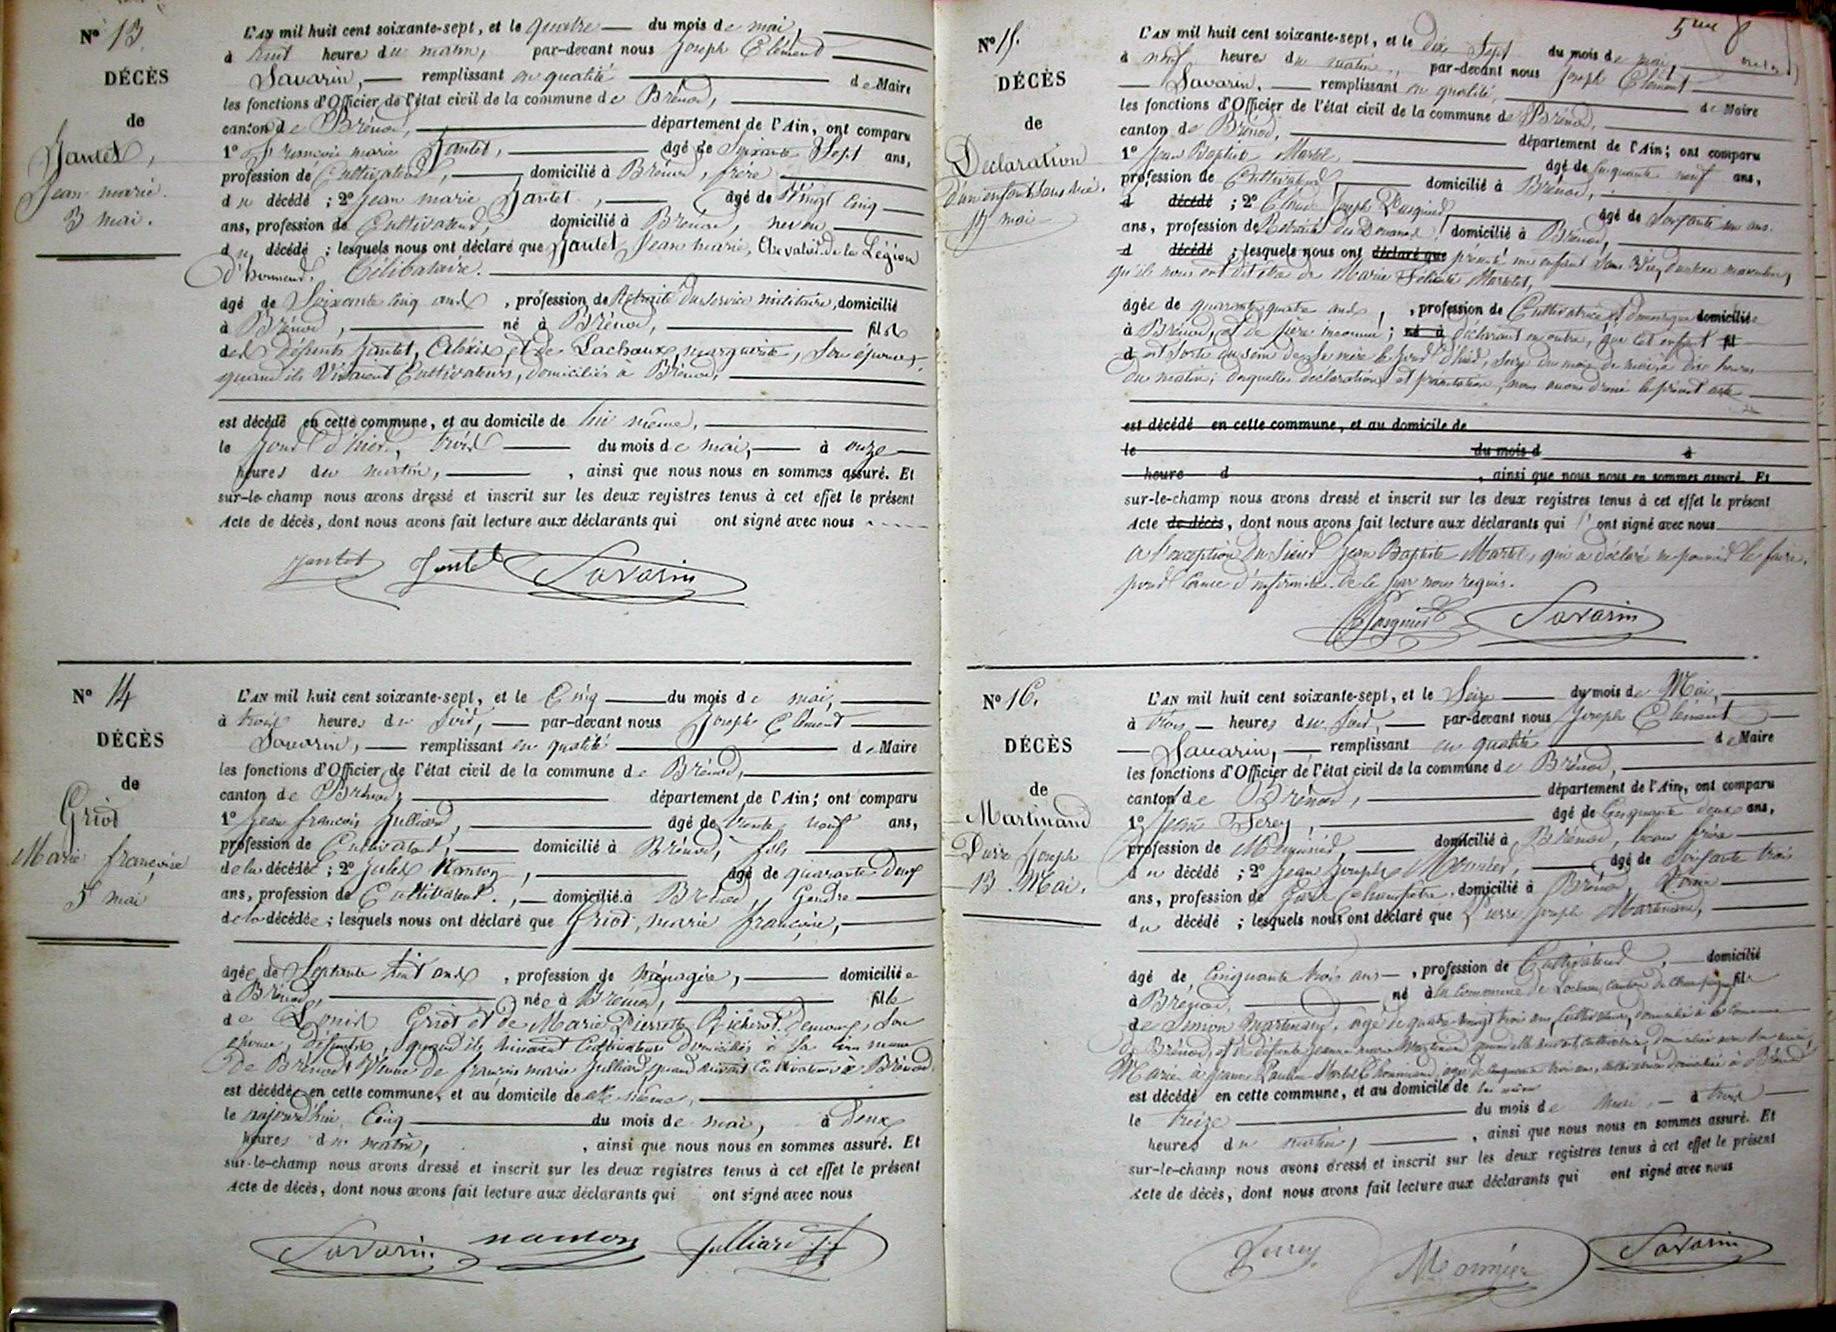 N° 13.
DÉCÈS
de
Jantet,
Jean marie.
3 mai.
L'AN mil huit cent soixante-sept, et le quatre du mois de mai,
à huit heures du matin, par-devant nous Joseph Clément
Savarin, remplissant en qualité de Maire
les fonctions d'Officier de l'état civil de la commune de Brénod,
canton de Brénod, département de l'Ain, ont comparu
1° François marie Jantet, âgé de Soixante Sept ans,
profession de Cultivateur, domicilié à Brénod, frère
du décédé ; 2° Jean marie Jantet, âgé de Vingt Cinq
ans, profession de Cultivateur, domicilié à Brénod, neveu
du décédé ; lesquels nous ont déclaré que Jantet, Jean marie, Chevalier de la Légion
d'honneur, Célibataire.
âgé de Soixante Cinq ans, profession de Retraité du service militaire, domicilié
à Brénod, né à Brénod, fils
des défunts Jantet, Aléxis et de Lachaux, marguerite, Son épouse,
quand ils Vivaient Cultivateurs, domiciliés à Brénod,
est décédé en cette commune, et au domicile de lui même,
le jour d'hier, trois du mois de mai, à onze
heures du matin, ainsi que nous nous en sommes assuré. Et
sur-le-champ nous avons dressé et inscrit sur les deux registres tenus à cet effet le présent
Acte de décès, dont nous avons fait lecture aux déclarants qui ont signé avec nous
Jantet Jantet Savarin
N° 14
DÉCÈS
de
Griot
Marie françoise
5 mai
L'AN mil huit cent soixante-sept, et le Cinq du mois de mai,
à trois heures du Soir, par-devant nous Joseph Clément
Savarin, remplissant en qualité de Maire
les fonctions d'Officier de l'état civil de la commune de Brénod,
canton de Brénod, département de l'Ain ; ont comparu
1° Jean françois Julliard, âgé de trente neuf ans,
profession de Cultivateur, domicilié à Brénod, fils
de la décédée ; 2° Jules Nanton, âgé de quarante Deux
ans, profession de Cultivateur, domicilié à Brénod, Gendre
de la décédée ; lesquels nous ont déclaré que Griot, marie françoise,
âgée de Septante huit ans, profession de ménagère, domiciliée
à Brénod, née à Brénod, fille
de Louis Griot et de Marie Pierrette Richerot Demoux, Son
épouse, défunts, quand ils vivaient Cultivateurs domiciliés à la Commune
de Brénod, Veuve de françois marie Julliard, quand vivait Cultivateur à Brénod
est décédée en cette commune, et au domicile de elle même,
le aujourd'hui Cinq du mois de mai, à Deux
heures du matin, ainsi que nous nous en sommes assuré. Et
sur-le-champ nous avons dressé et inscrit sur les deux registres tenus à cet effet le présent
Acte de décès, dont nous avons fait lecture aux déclarants qui ont signé avec nous
Savarin nanton Julliard J f
5me
N° 15.
DÉCÈS
de
Déclaration
d'un enfant sans vie.
17 mai
L'AN mil huit cent soixante-sept, et le dix Sept du mois de mai,
à neuf heures du matin, par-devant nous Joseph Clément
Savarin, remplissant en qualité, de Maire
les fonctions d'Officier de l'état civil de la commune de Brénod,
canton de Brénod, département de l'Ain ; ont comparu
1° Jean Baptiste Martel âgé de Cinquante neuf ans,
profession de Cultivateur, domicilié à Brénod,
d décédé ; 2° Claude Joseph Pasquier âgé de Soixante un ans.
ans, profession de Retraité des Douanes, domicilié à Brénod,
d décédé ; lesquels nous ont déclaré que présenté un enfant Sans Vie, du sexe masculin,
qu'ils nous ont dit être de Marie Félicité Martel,
âgée de quarante quatre ans, profession de Cultivatrice, domiciliée
à Brénod, et de père inconnu ; né à déclarant en outre, que cet enfant fil
d est sorti du sein de Sa mère le jour d'hier, Seize du mois de mai, à dix heures
du matin ; desquelles déclaration et présentation, nous avons dressé le présent acte
est décédé en cette commune, et au domicile de
le du mois d à
heure d , ainsi que nous nous en sommes assuré. Et
sur-le-champ nous avons dressé et inscrit sur les deux registres tenus à cet effet le présent
Acte de décès, dont nous avons fait lecture aux déclarants qui l'ont signé avec nous
à l'exception du Sieur Jean Baptiste Martel, qui a déclaré ne pouvoir le faire,
pour Cause d'infirmité de ce par nous requis.
Pasquier Savarin
N° 16.
DÉCÈS
de
Martinand
Pierre Joseph
13 Mai.
L'AN mil huit cent soixante-sept, et le Seize du mois de Mai,
à trois heures du Soir, par-devant nous Joseph Clément
Savarin, remplissant en qualité de Maire
les fonctions d'Officier de l'état civil de la commune de Brénod,
canton de Brénod, département de l'Ain, ont comparu
1° Jean Serey âgé de Cinquante deux ans,
profession de Menuisier domicilié à Brénod, beau frère
du décédé ; 2° Jean Joseph Monnier, âgé de Soixante trois
ans, profession de Garde Champêtre, domicilié à Brénod, Voisin
du décédé ; lesquels nous ont déclaré que Pierre Joseph Martinand,
âgé de Cinquante trois ans, profession de Cultivateur, domicilié
à Brénod, né à la Commune de Lochieu, Canton de Champagne fils
de Simon Martinand, âgé de quatre-vingt trois ans, Cultivateur, domicilié à la Commune
de Brénod, et de défunte Jeanne marie quand elle vivait cultivatrice,
Marié à Jeanne Pauline Martel âgée de Cinquante trois ans, Cultivatrice domiciliée à Brénod
est décédé en cette commune, et au domicile de lui même
le treize du mois de Mai à trois
heures du matin, ainsi que nous nous en sommes assuré. Et
sur-le-champ nous avons dressé et inscrit sur les deux registres tenus à cet effet le présent
Acte de décès, dont nous avons fait lecture aux déclarants qui ont signé avec nous
Serrey Monnier Savarin